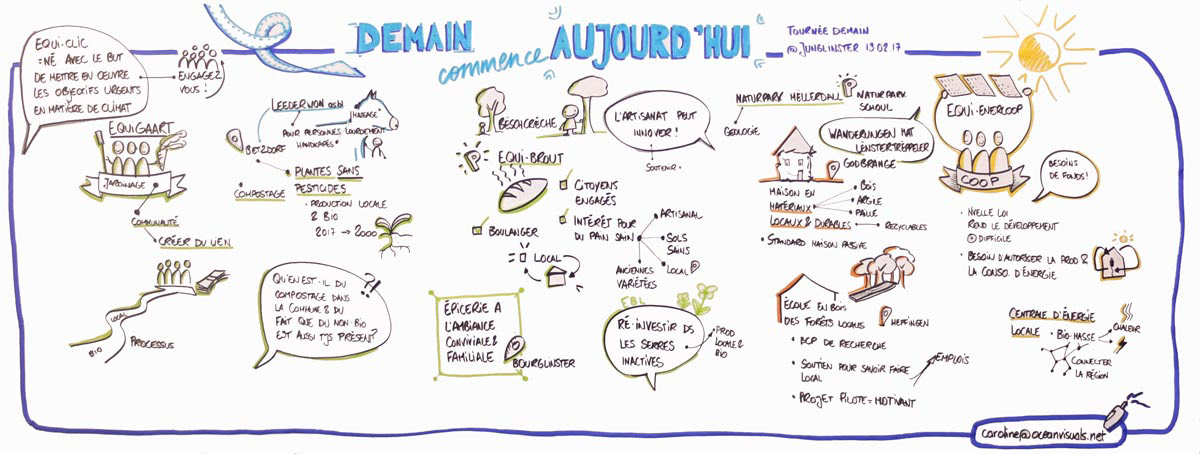 DEMAIN
commence
AUJOURD'HUI
TOURNÉE DEMAIN
@ JUNGLINSTER 13.02.17
EQUI-CLIC
= NÉ AVEC LE BUT
DE METTRE EN ŒUVRE
LES OBJECTIFS URGENTS
EN MATIÈRE DE CLIMAT
ENGAGEZ
VOUS !
EQUIGAART
JARDINAGE
COMMUNAUTÉ
CRÉER DU LIEN
LOCAL
BIO
PROCESSUS
LEEDERWON asbl
MARAGE
POUR PERSONNES LOURDEMENT
HANDICAPÉS
BETZDORF
PLANTES SANS
PESTICIDES
COMPOSTAGE
• PRODUCTION LOCALE
& BIO
2017 → 2000
QU'EN EST-IL DU
COMPOSTAGE DANS
LA COMMUNE & DU
FAIT QUE DU NON-BIO
EST AUSSI TJS PRÉSENT ?
?!
BESCHCRÈCHE
EQUI-BROUT
CITOYENS
ENGAGÉS
BOULANGER
INTÉRÊT POUR
DU PAIN SAIN
ARTISANAL
SOLS
SAINS
LOCAL
ANCIENNES
VARIÉTÉS
LOCAL
ÉPICERIE À
L'AMBIANCE
CONVIVIALE &
FAMILIALE
BOURGLINSTER
L'ARTISANAT PEUT
INNOVER !
SOUTENIR
EBL
RÉ-INVESTIR DS
LES SERRES
INACTIVES
PROD
LOCALE &
BIO
NATURPARK MËLLERDALL
GEOLOGIE
NATURPARK
SCHOUL
WANDERUNGEN MAT
LËNSTERTRËPPELER
GODBRANGE
MAISON EN
MATÉRIAUX
LOCAUX & DURABLES
BOIS
ARGILE
PAILLE
RECYCLABLES
• STANDARD MAISON PASSIVE
ÉCOLE EN BOIS
DES FORÊTS LOCALES
HEFFINGEN
• BCP DE RECHERCHE
• SOUTIEN POUR SAVOIR FAIRE
LOCAL
EMPLOIS
• PROJET PILOTE = MOTIVANT
EQUI-ENERCOOP
COOP
BESOINS
DE FONDS !
• NVELLE LOI
REND LE DÉVELOPPEMENT
+ DIFFICILE
• BESOIN D'AUTORISER LA PROD &
LA CONSO D'ÉNERGIE
CENTRALE D'ÉNERGIE
LOCALE • BIO-MASSE
CHALEUR
CONNECTER
LA RÉGION
caroline@oceanvisuals.net